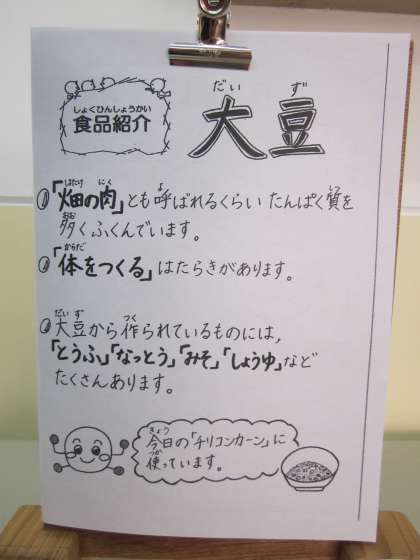 しょくひんしょうかい
食品紹介
だい ず
大豆
はたけ にく よ しつ
「畑の肉」とも呼ばれるくらい たんぱく質を
おお
多くふくんでいます。
からだ
「体をつくる」はたらきがあります。
だいず つく
大豆から作られているものには、
「とうふ」「なっとう」「みそ」「しょうゆ」など
たくさんあります。
きょう
今日の「チリコンカーン」に
つか
使っています。